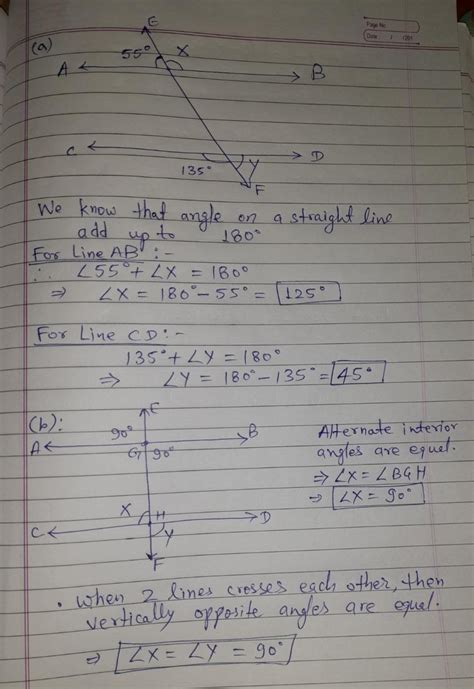 Page No.
Date : / /201
(a)
E
55° X
A B
C D
135° Y
F
We know that angle on a straight line
add up to 180°
For Line AB :-
∴ ∠55° + ∠X = 180°
⇒ ∠X = 180° - 55° = 125°
For Line CD :-
135° + ∠Y = 180°
⇒ ∠Y = 180° - 135° = 45°
(b):
E
90°
A B
G 90°
X H
C D
Y
F
Alternate interior
angles are equal.
⇒ ∠X = ∠BGH
⇒ ∠X = 90°
• When 2 lines crosses each other, then
vertically opposite angles are equal.
⇒ ∠X = ∠Y = 90°